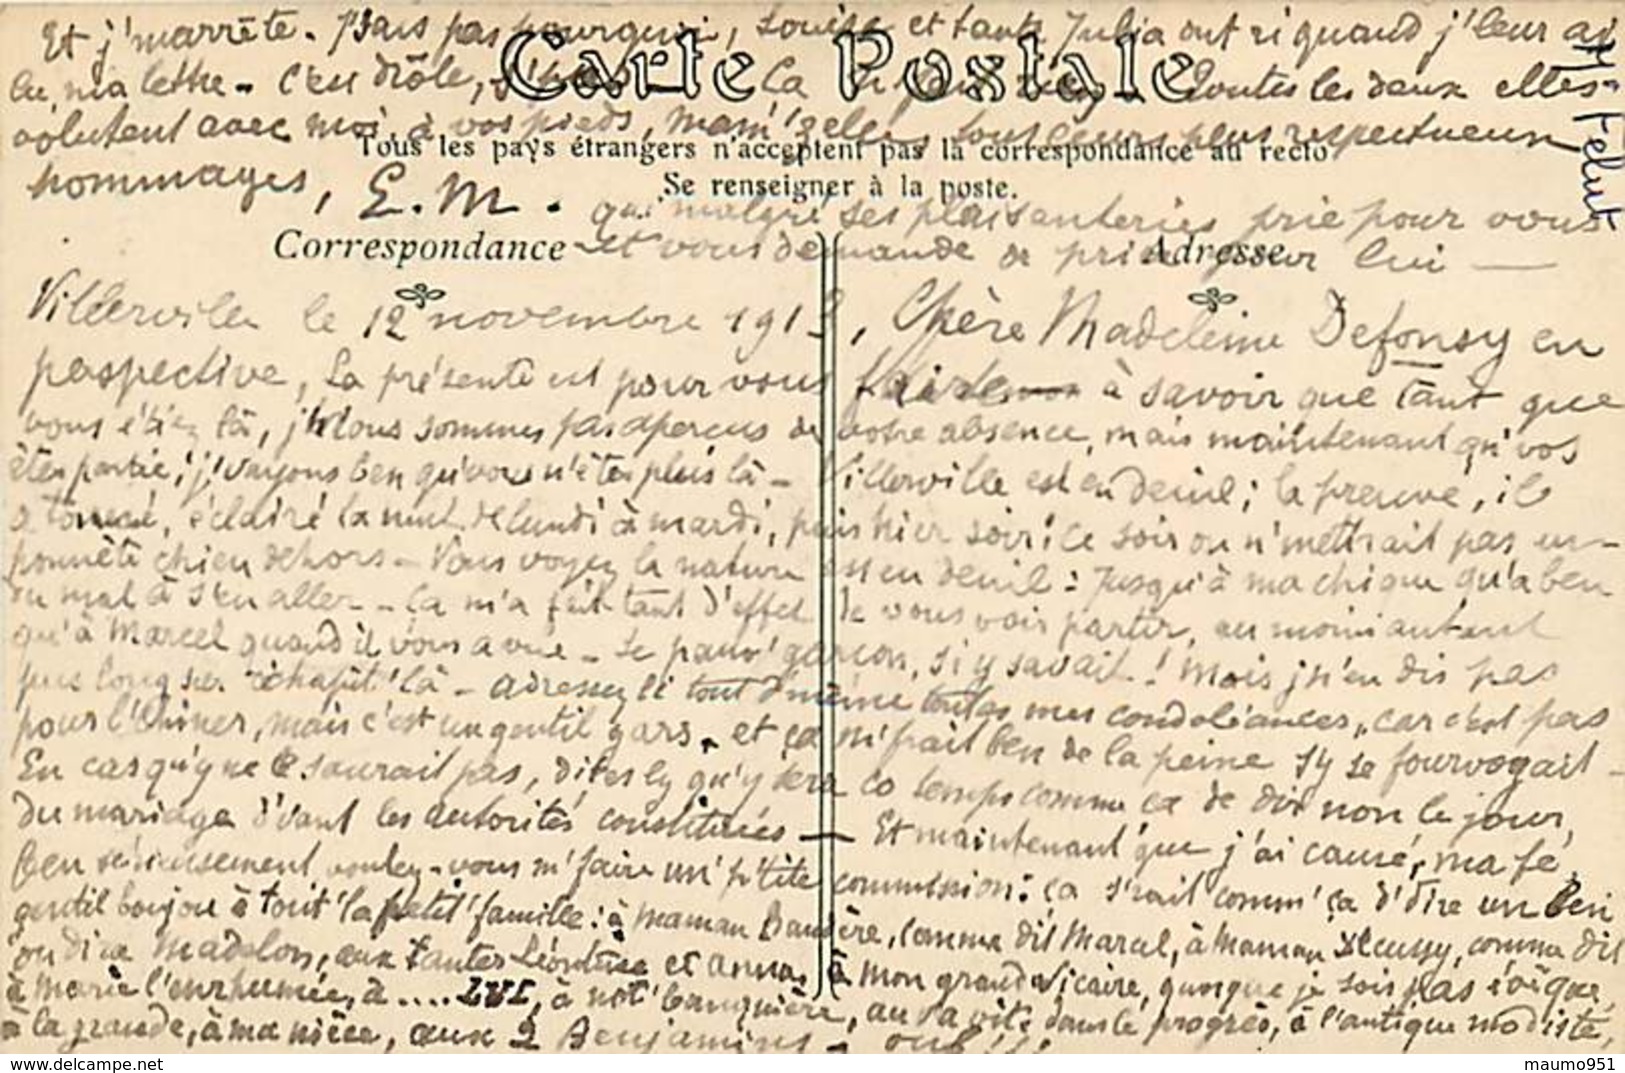 Et j'marrête. J'sais pas pourquoi, Louise et tante Julia ont ri quand j'leur ai
lu, ma lettre - C'en drôle, Ça Toutes les deux elles
volutent avec moi, à vos pieds, Mam'zelle, tous leurs plus respectueux
hommages, E. M. Mr Felut
Carte Postale
Tous les pays étrangers n'acceptent pas la correspondance au recto
Se renseigner à la poste.
qui malgré ses plaisanteries prie pour vous
et vous demande de prier pour lui —
Correspondance
Adresse
Villerville le 12 novembre 1913, Chère Madeleine Defonsy en
perspective, La présente est pour vous faire à savoir que tant que
vous étiez là, j'nous sommes pas aperçus de votre absence, mais maintenant qu'vos
êtes partie, j'voyons ben qu'vous n'êtes plus là - Villerville est en deuil; la preuve, il
a tonné, éclairé la nuit de lundi à mardi, puis hier soir; ce soir on n'mettrait pas un
honnête chien dehors - Vous voyez la nature est en deuil: Jusqu'à ma chique qu'a ben
du mal à s'en aller - Ça m'a fait tant d'effet de vous voir partir, au moins autant
qu'à Marcel quand il vous a vue - Le pauv' garçon, s'i y savait! Mais j'n'en dis pas
pus long su c'chapit'là - Adressez li tout d'même toutes mes condoléances, car c'est pas
pour l'chiner, mais c'est un gentil gars, et ça m'frait ben de la peine s'y se fourvoyait -
En cas qu'y ne le saurait pas, dites ly qu'y sera co temps comme ça de dir non le jour,
du mariage d'vant les autorités constituées — Et maintenant que j'ai causé, ma fé,
ben sérieusement voulez-vous m'faire un' p'tite commission: ça s'rait comm' ça d'dire un ben
gentil bonjou à tout' la petit' famille: à Maman Bandère, comme dit Marcel, à Maman comme dit
ou dira Madelon, aux tantes Léontine et Anna, à Mon grand Vicaire, quoique je sois pas évêque,
à Marie l'enrhumée, à .... LUI, à not' banquière, au dans le progrès, à l'antique modiste,
à la grande, à ma nièce, aux 2 Benjamines - ouf!!!
maumo951